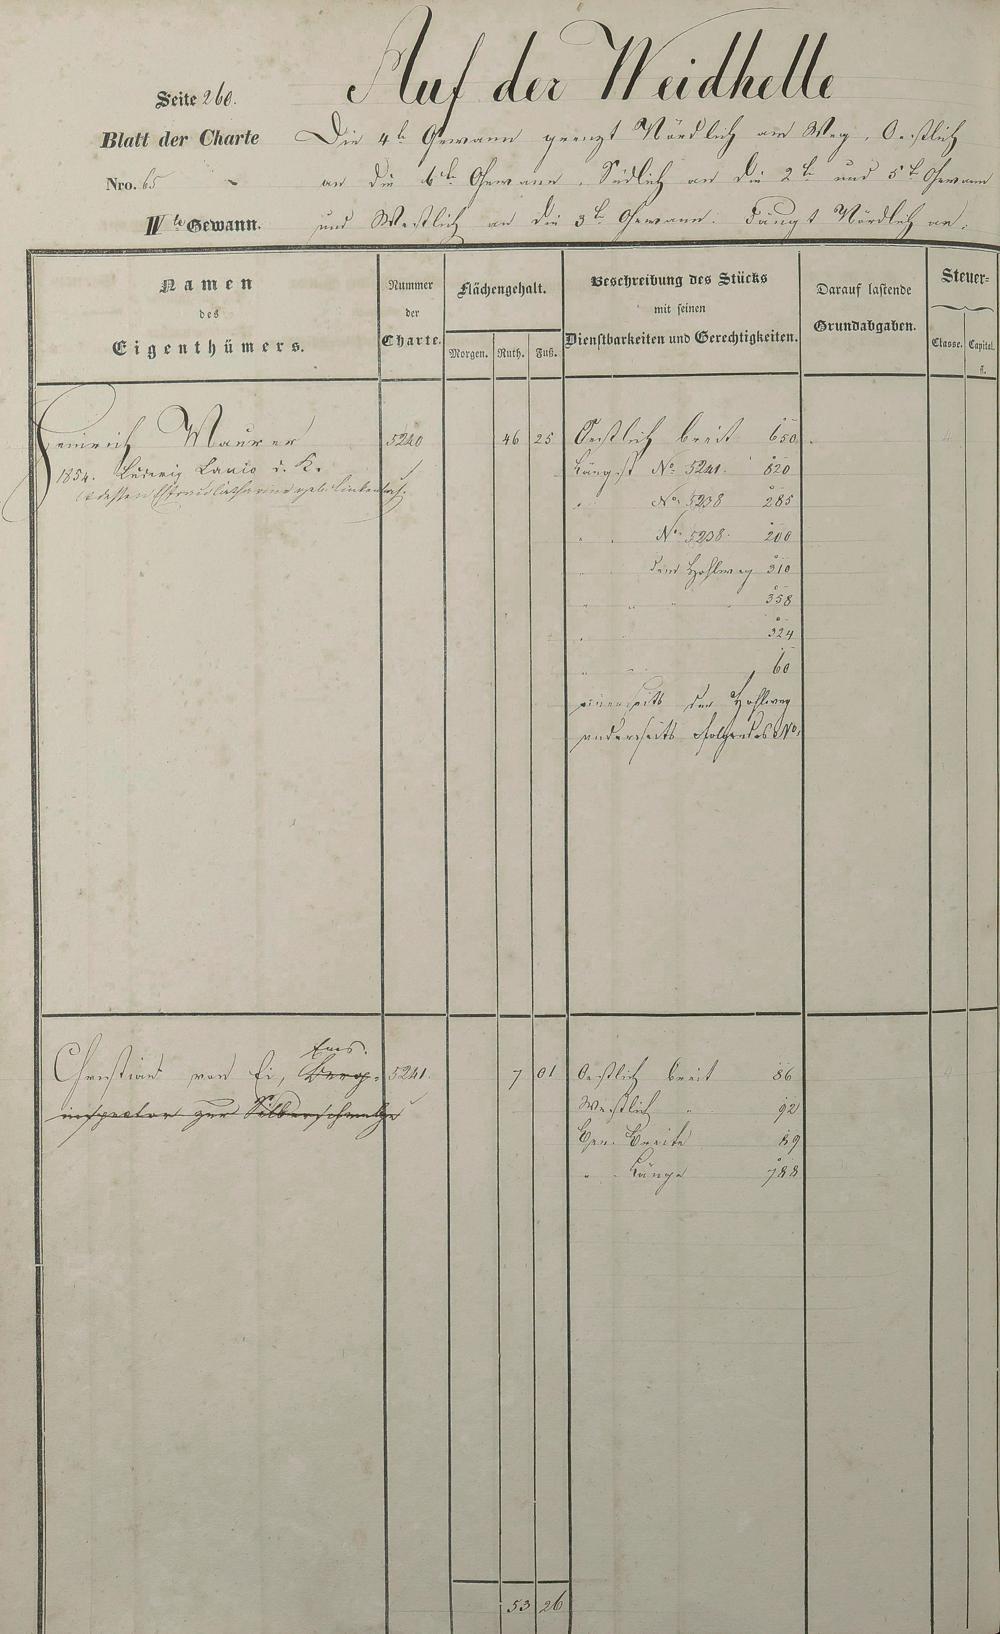 Auf der Weidhelle
Seite 260.
Blatt der Charte
Nro. 65
IV te Gewann.
Die 4te Gewann grenzt Nördlich am Weg, Oestlich
an die 6te Gewann, Südlich an die 2te und 5te Gewann
und Westlich an die 3te Gewann. Fängt Nördlich an.
Namen
des
Eigenthümers.
Nummer
der
Charte.
Flächengehalt.
Morgen. Ruth. Fuß.
Beschreibung des Stücks
mit seinen
Dienstbarkeiten und Gerechtigkeiten.
Darauf lastende
Grundabgaben.
Steuer=
Classe. Capital.
fl.
Heinrich Maurer 5240 46 25 Oestlich breit 650
1854. Ludwig d. K. Längst No 5241. 820
" No 5238 285
" " No 5238. 200
" dem Hohlweg 310
" " " " 358
" 324
" " 60
einerseits der Hohlweg
anderseits folgendes No.
Ems.
Christian von Ei, Berg= 5241. 7 01 Oestlich breit 86
inspector zur Silberschmelze Westlich " 92
Breite 89
" Länge 788
53 26